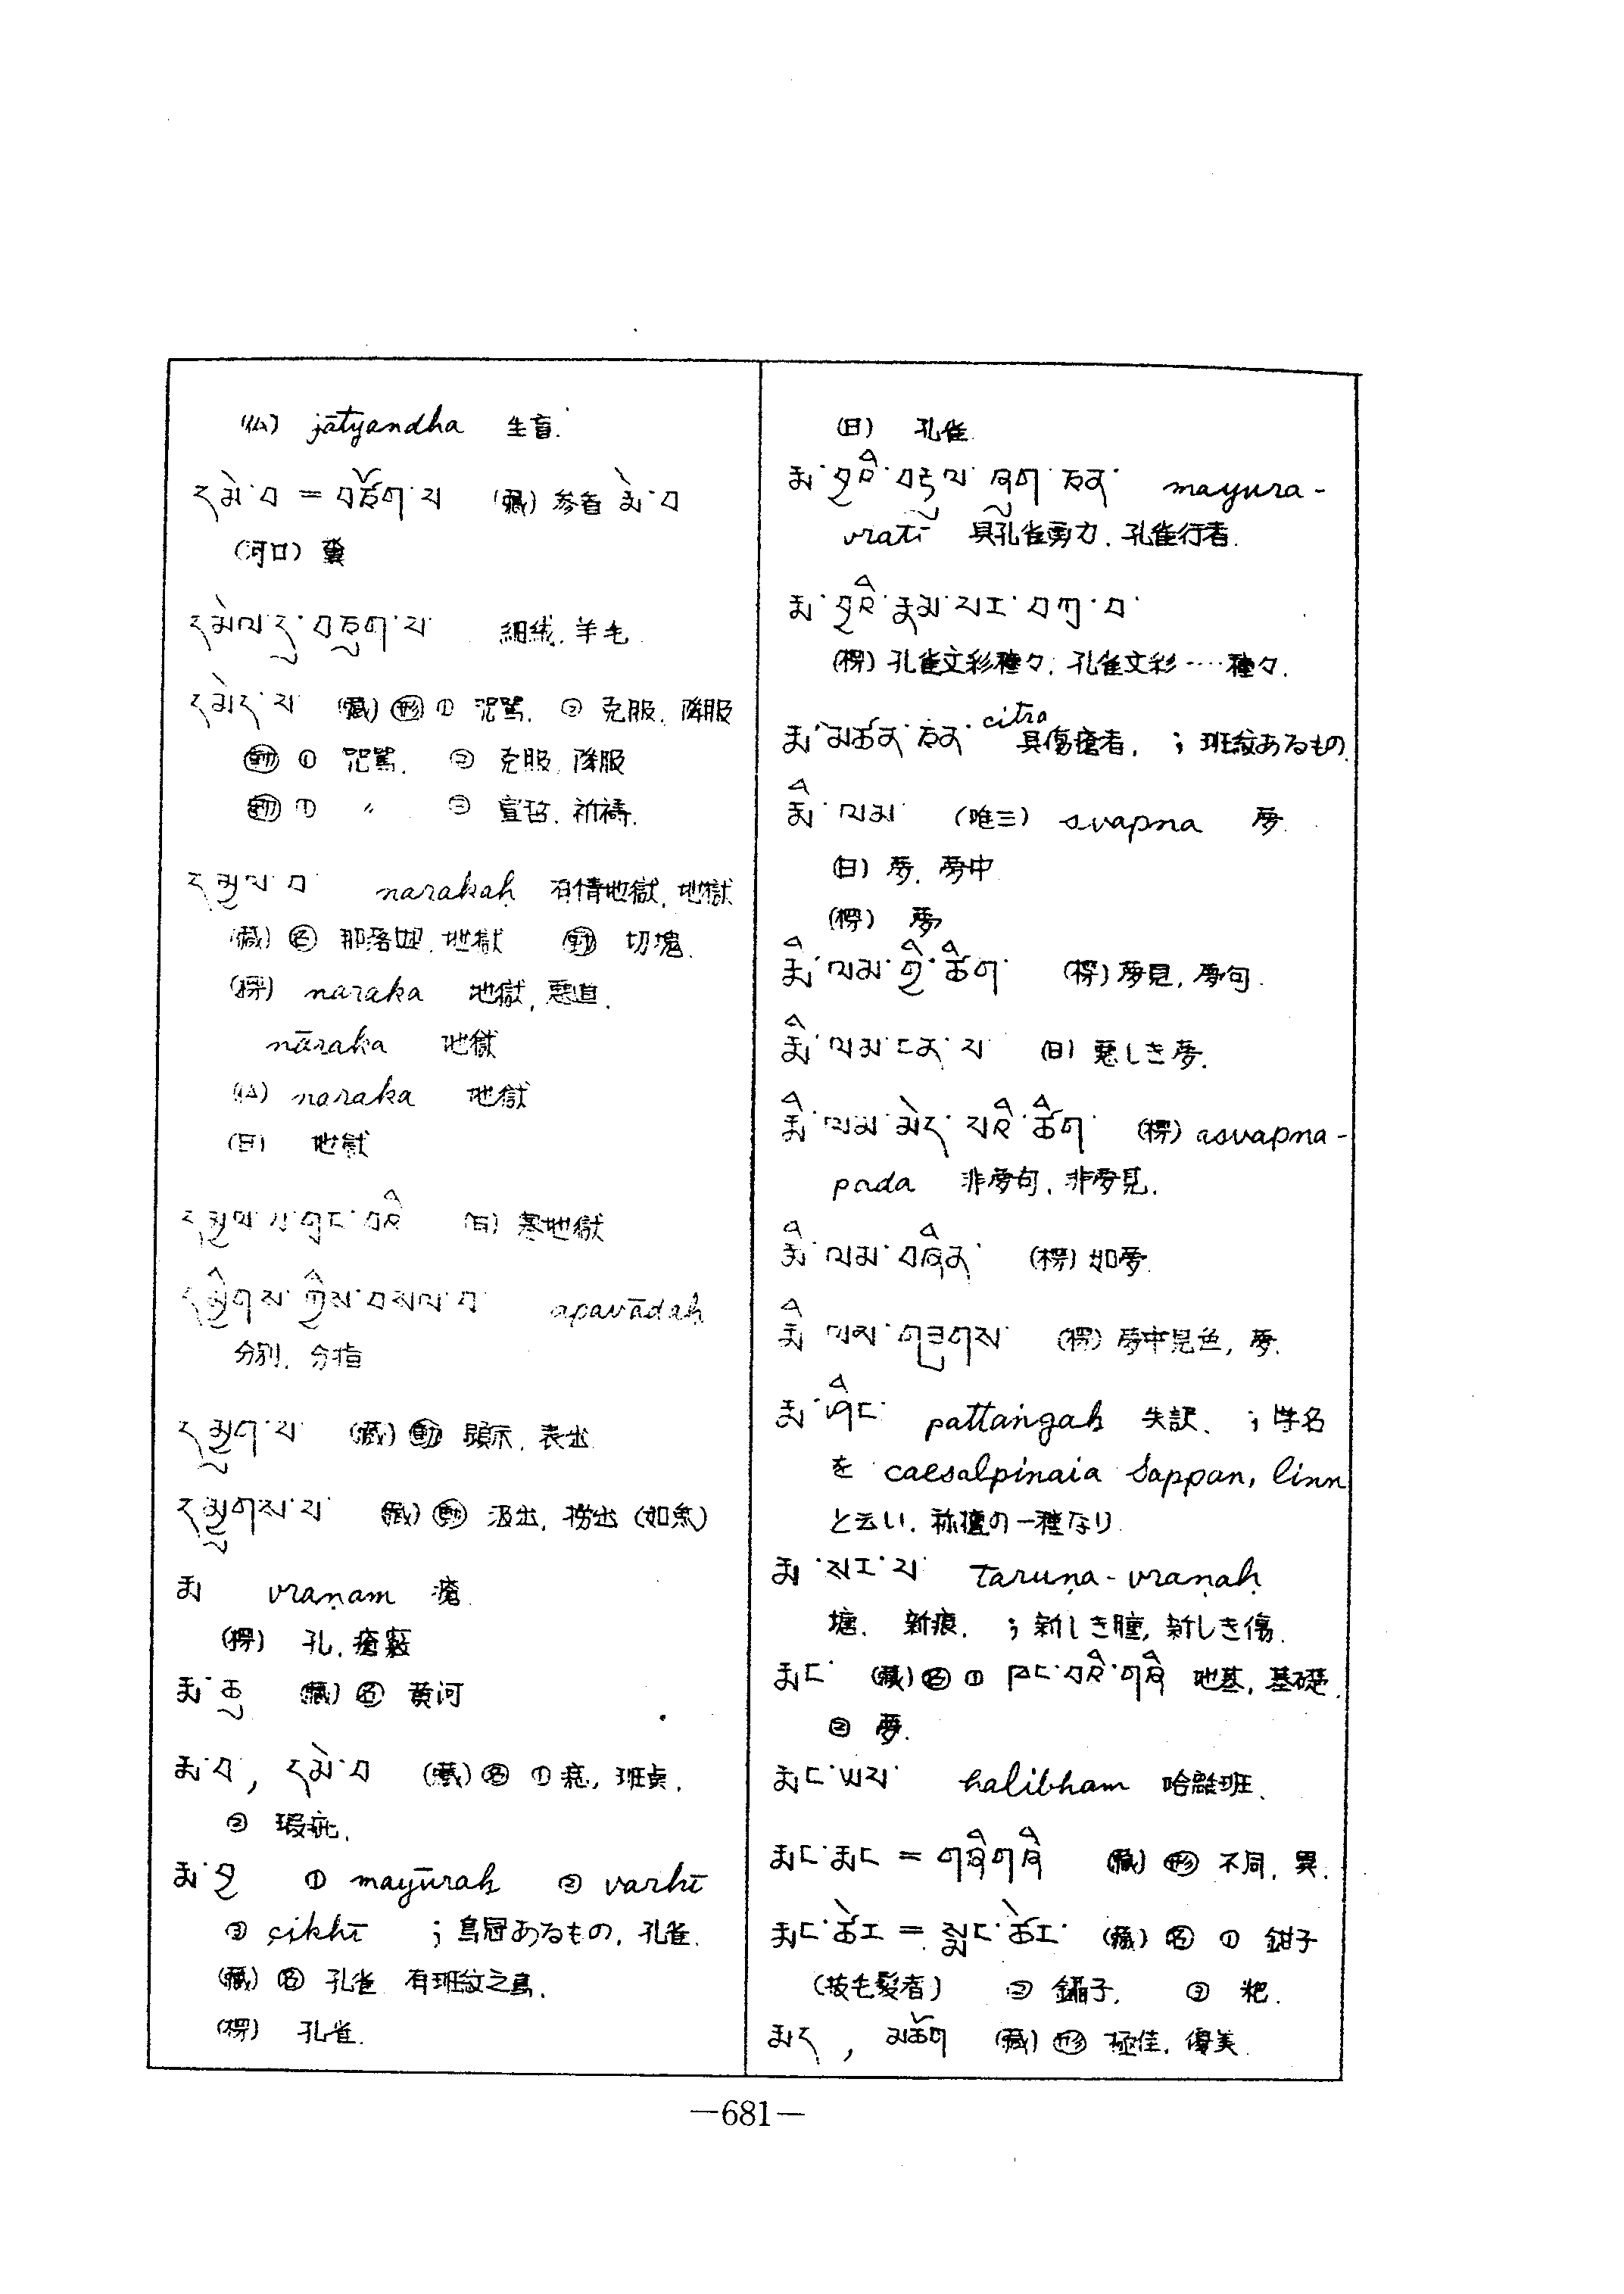 (仏) jātyandha 生盲.
དམེ་བ = བཙོག་པ (藏) 参看 མེ་བ
(河口) 糞
དམེལ་དུ་བཅུག་པ 細绒. 羊毛
དམོད་པ (藏) 形 ① 咒駡. ② 克服. 降服
動 ① 咒駡. ② 克服. 降服
動 ① 〃 ② 宣誓. 祈禱.
དམྱལ་བ narakaḥ 有情地獄, 地獄
(藏) 名 那落迦. 地獄 動 切塊.
(楞) naraka 地獄, 悪道.
nāraka 地獄
(仏) naraka 地獄
(日) 地獄
དམྱལ་བ་གྲང་བའི (日) 寒地獄
དམིགས་ཀྱིས་བསལ་བ apavādaḥ
分別. 分指
དམྱུག་པ (藏) 動 顕示. 表出
དམྱུགས་པ (藏) 動 汲出, 捞出 (如魚)
རྨ vraṇam 瘡.
(楞) 孔, 瘡竅
རྨ་ཆུ (藏) 名 黄河
རྨ་བ, དམེ་བ (藏) 名 ① 痣, 班点.
② 瑕疵.
རྨ་བྱ ① mayūraḥ ② varhī
③ çikhī ; 鳥冠あるもの, 孔雀.
(藏) 名 孔雀 有班紋之鳥.
(楞) 孔雀.
(日) 孔雀.
རྨ་བྱའི་བརྟུལ་ཞུག་ཅན་ mayura-
vratī 具孔雀勇力. 孔雀行者.
རྨ་བྱའི་རྣམ་པར་བཀྲ་བ་
(楞) 孔雀文彩種々. 孔雀文彩‥‥種々.
རྨ་མཚན་ཅན་ citra 具傷瘡者. ; 班紋あるもの.
རྨི་ལམ་ (唯三) svapna 夢.
(日) 夢. 夢中
(楞) 夢
རྨི་ལམ་གྱི་ཚིག་ (楞) 夢見, 夢句.
རྨི་ལམ་ངན་པ (日) 悪しき夢.
རྨི་ལམ་མེད་པའི་ཚིག་ (楞) asvapna-
pada 非夢句. 非夢見.
རྨི་ལམ་བཞིན་ (楞) 如夢.
རྨི་ལམ་གཟུགས་ (楞) 夢中見色, 夢.
རྨ་ཤིང་ pattaṅgaḥ 失訳. ; 学名
を caesalpinaia Sappan, linn
と云い. 栴檀の一種なり.
རྨ་སར་པ་ taruṇa-vraṇaḥ
塘. 新痕. ; 新しき腫, 新しき傷.
རྨང་ (藏) 名 ① ཁང་བའི་གཞི 地基, 基礎.
② 夢.
རྨང་ཡས་ halibham 哈離班.
རྨང་རྨང = གཞིགཞི (藏) 形 不同, 異.
རྨང་ཚེར = སྨང་ཚེར་ (藏) 名 ① 鉗子
(拔毛髪者) ② 鑷子. ③ 耙.
རྨད, མཆོག (藏) 形 極佳. 優美.
—681—